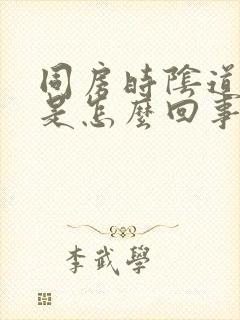 同房時陰道
是怎麼回事
李武學